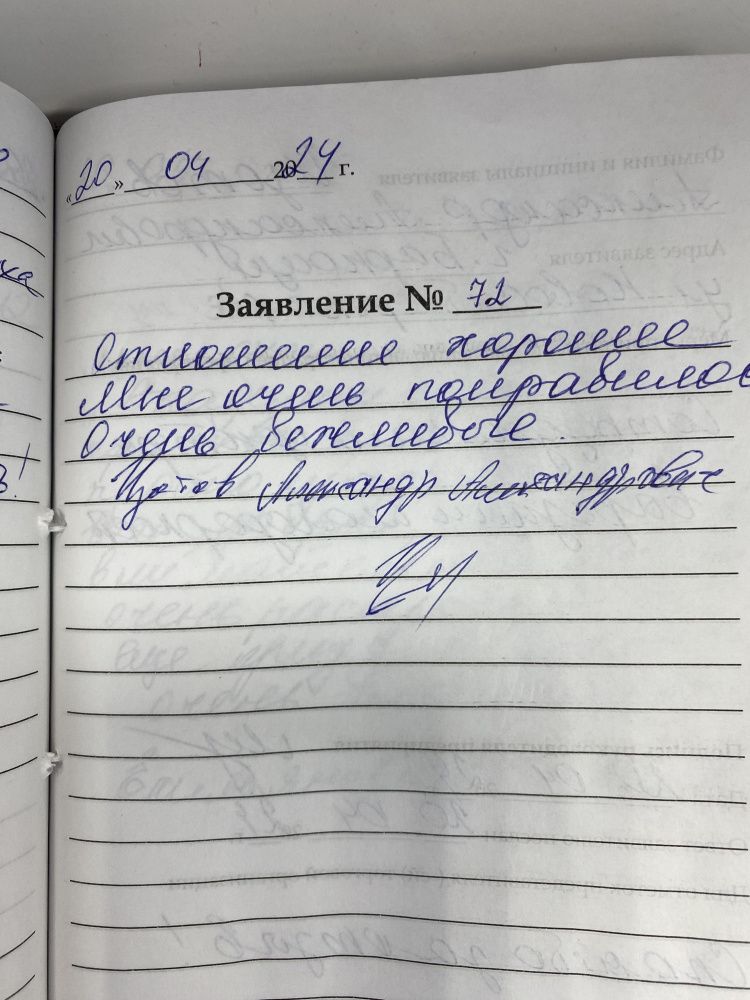 «20» 04 2024 г.
Заявление № 72
Отношение хорошее
Мне очень понравилос
Очень вежливые.
Александр Александрович